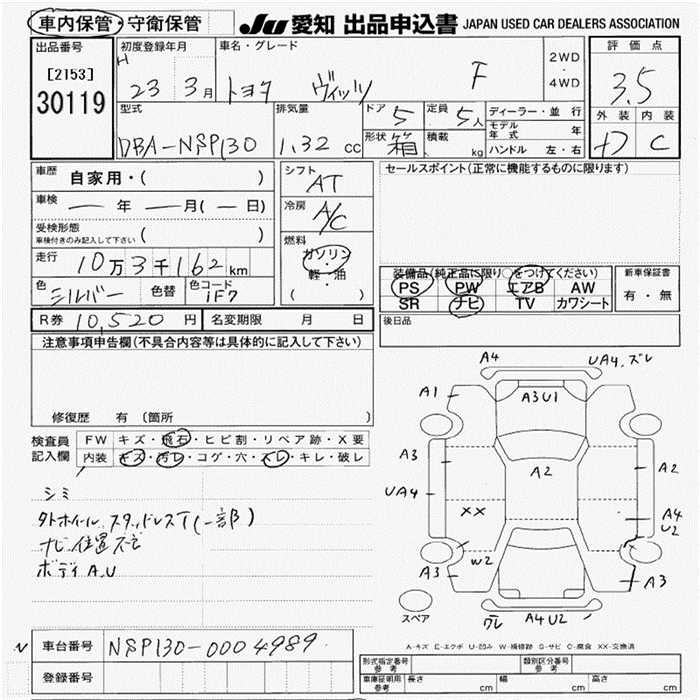 車内保管・守衛保管
JU 愛知 出品申込書 JAPAN USED CAR DEALERS ASSOCIATION
出品番号
[2153]
30119
初度登録年月
H 23 3月
車名・グレード
トヨタ ヴィッツ F
2WD
4WD
評価点
3.5
外装 内装
D C
型式
DBA-NSP130
排気量
1.32 cc
ドア 5
定員 5人
形状 箱
積載 kg
ディーラー・並行
モデル年式 年
ハンドル 左・右
車歴 自家用・( )
車検 ― 年 ― 月(― 日)
受検形態
車検付きのみ記入して下さい ( )
走行 10万3千162 km
色 シルバー 色替 色コード 1F7
シフト AT
冷房 A/C
燃料
ガソリン
軽・油
( )
セールスポイント(正常に機能するものに限ります)
装備品(純正品に限り○をつけてください)
PS PW エアB AW
SR ナビ TV カワシート
新車保証書
有・無
後日品
R券 10,520 円 名変期限 月 日
注意事項申告欄(不具合内容等は具体的に記入して下さい)
修復歴 有 (箇所
検査員
記入欄
FW キズ・飛石・ヒビ割・リペア跡・X要
内装 キズ・汚レ・コゲ・穴・スレ・キレ・破レ
シミ
タトホイール スタッドレスT(一部)
ナビ位置ズミ
ボディA,U
A4
UA4,ズレ
A1
A3U1
A3
A2
A2
UA4
XX
A4
U2
W2
A3
A3
スペア
ワレ A4U2
A-キズ E-エクボ U-凹み W-補修跡 S-サビ C-腐食 XX-交換済
N
車台番号 NSP130-0004989
登録番号
形式指定番号
参考
類別区分番号
参考
車庫証明用
参考
長さ cm 幅 cm 高さ cm